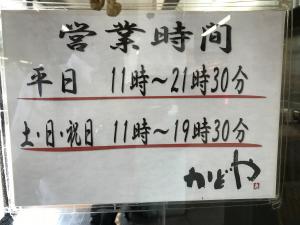 営業時間
平日 11時～21時30分
土・日・祝日 11時～19時30分
かどや